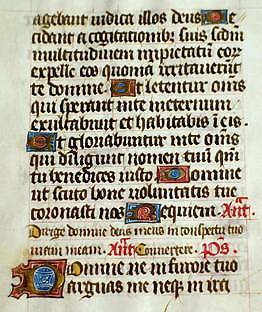 agebant iudica illos deus De
cidant a cogitationibus suis scdm
multitudinem impietatū eorum
expelle eos quoniā irritauerūt
te domine. Et letentur oms
qui sperant in te in eternum
exultabunt et habitabis ī eis.
Et gloriabuntur in te oms
qui diligunt nomen tuū qm̄
tu benedices iusto Domine
ut scuto bone voluntatis tue
coronasti nos Requiem. Ant.
Dirige domine deus meus in conspectu tuo
uiam meam. Ant Conuertere. Ps.
Domine ne in furore tuo
arguas me neq; in ira